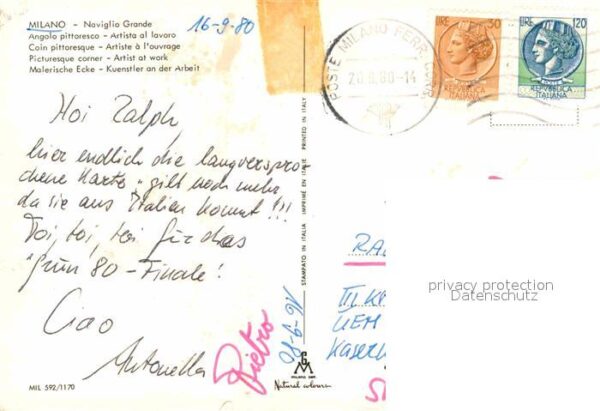 MILANO - Naviglio Grande
Angolo pittoresco - Artista al lavoro
Coin pittoresque - Artiste à l'ouvrage
Picturesque corner - Artist at work
Malerische Ecke - Kuenstler an der Arbeit
16-9-80
Hoi Ralph,
hier endlich die langverspro-
chene Karte "gilt noch mehr
da sie aus Italien kommt!!!
Toi, toi, toi für das
"Grün 80-Finale!
Ciao
Antonella
Pietro
MIL 592/1170
PRINTED IN ITALY
IMPRIMÉ EN ITALIE
STAMPATO IN ITALIA
Natural colour
POSTE MILANO FERR. CORR.
20.9.80-14
LIRE 50
REPUBBLICA
ITALIANA
LIRE 120
REPVBBLICA
ITALIANA
RA
III K
UEM
Kaser
privacy protection
Datenschutz